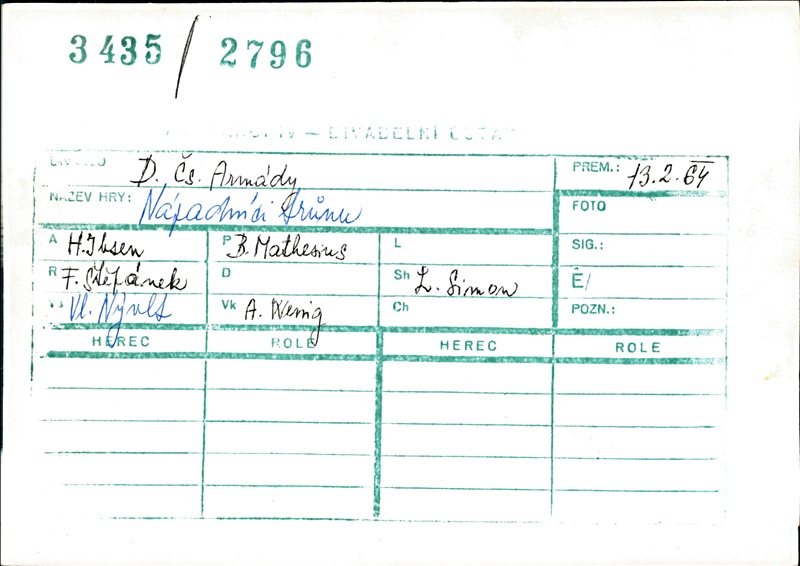 3435 / 2796
DIVADELNÍ ÚSTAV
DIVADLO D. Čs. Armády PREM.: 13.2.64
NÁZEV HRY: Nápadníci trůnu FOTO
A H. Ibsen P B. Mathesius L SIG.:
R F. Štěpánek D Sh L. Simon Č/
Vs Vl. Nývlt Vk A. Wenig Ch POZN.:
HEREC ROLE HEREC ROLE